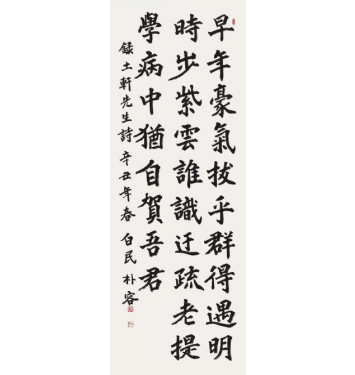 早年豪氣拔乎群得遇明
時步紫雲誰識迂疏老提
學病中猶自賀吾君
錄土軒先生詩 辛丑年春 白民 朴容